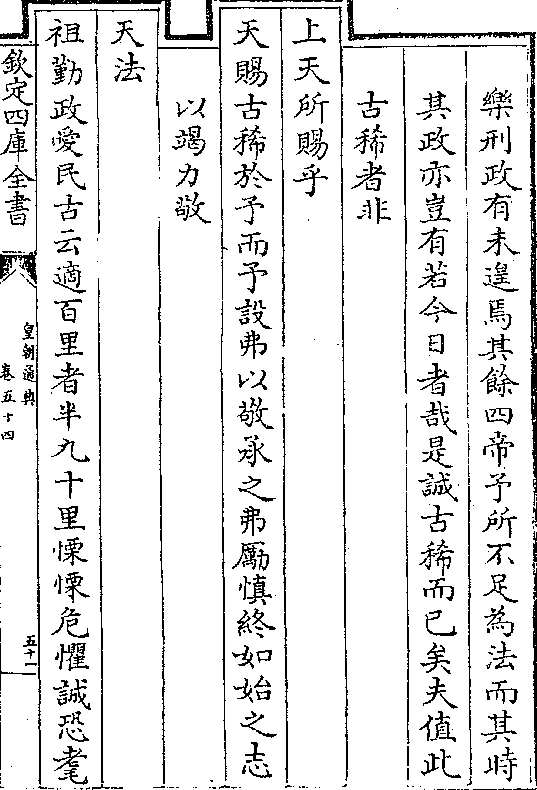 樂刑政有未遑焉其餘四帝予所不足為法而其時
其政亦豈有若今日者哉是誠古稀而已矣夫值此
古稀者非
上天所賜乎
天賜古稀於予而予設弗以敬承之弗厲慎終如始之志
以竭力敬
天法
祖勤政愛民古云適百里者半九十里慄慄危懼誠恐耄
欽定四庫全書
皇朝通典
卷五十四
五十一